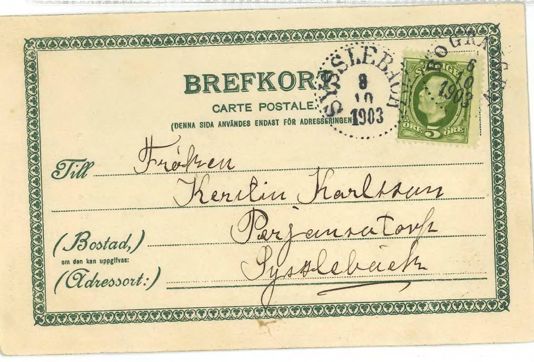 BREFKORT
CARTE POSTALE
(DENNA SIDA ANVÄNDES ENDAST FÖR ADRESSERINGEN)
SYSSLEBÄCK
8
10
1903
6
10
1903
SVERIGE
ÖRE 5 ÖRE
Till Fröken
Kerstin Karlsson
Perjansatorp
(Bostad,)
om den kan uppgifvas:
(Adressort:) Sysslebäck